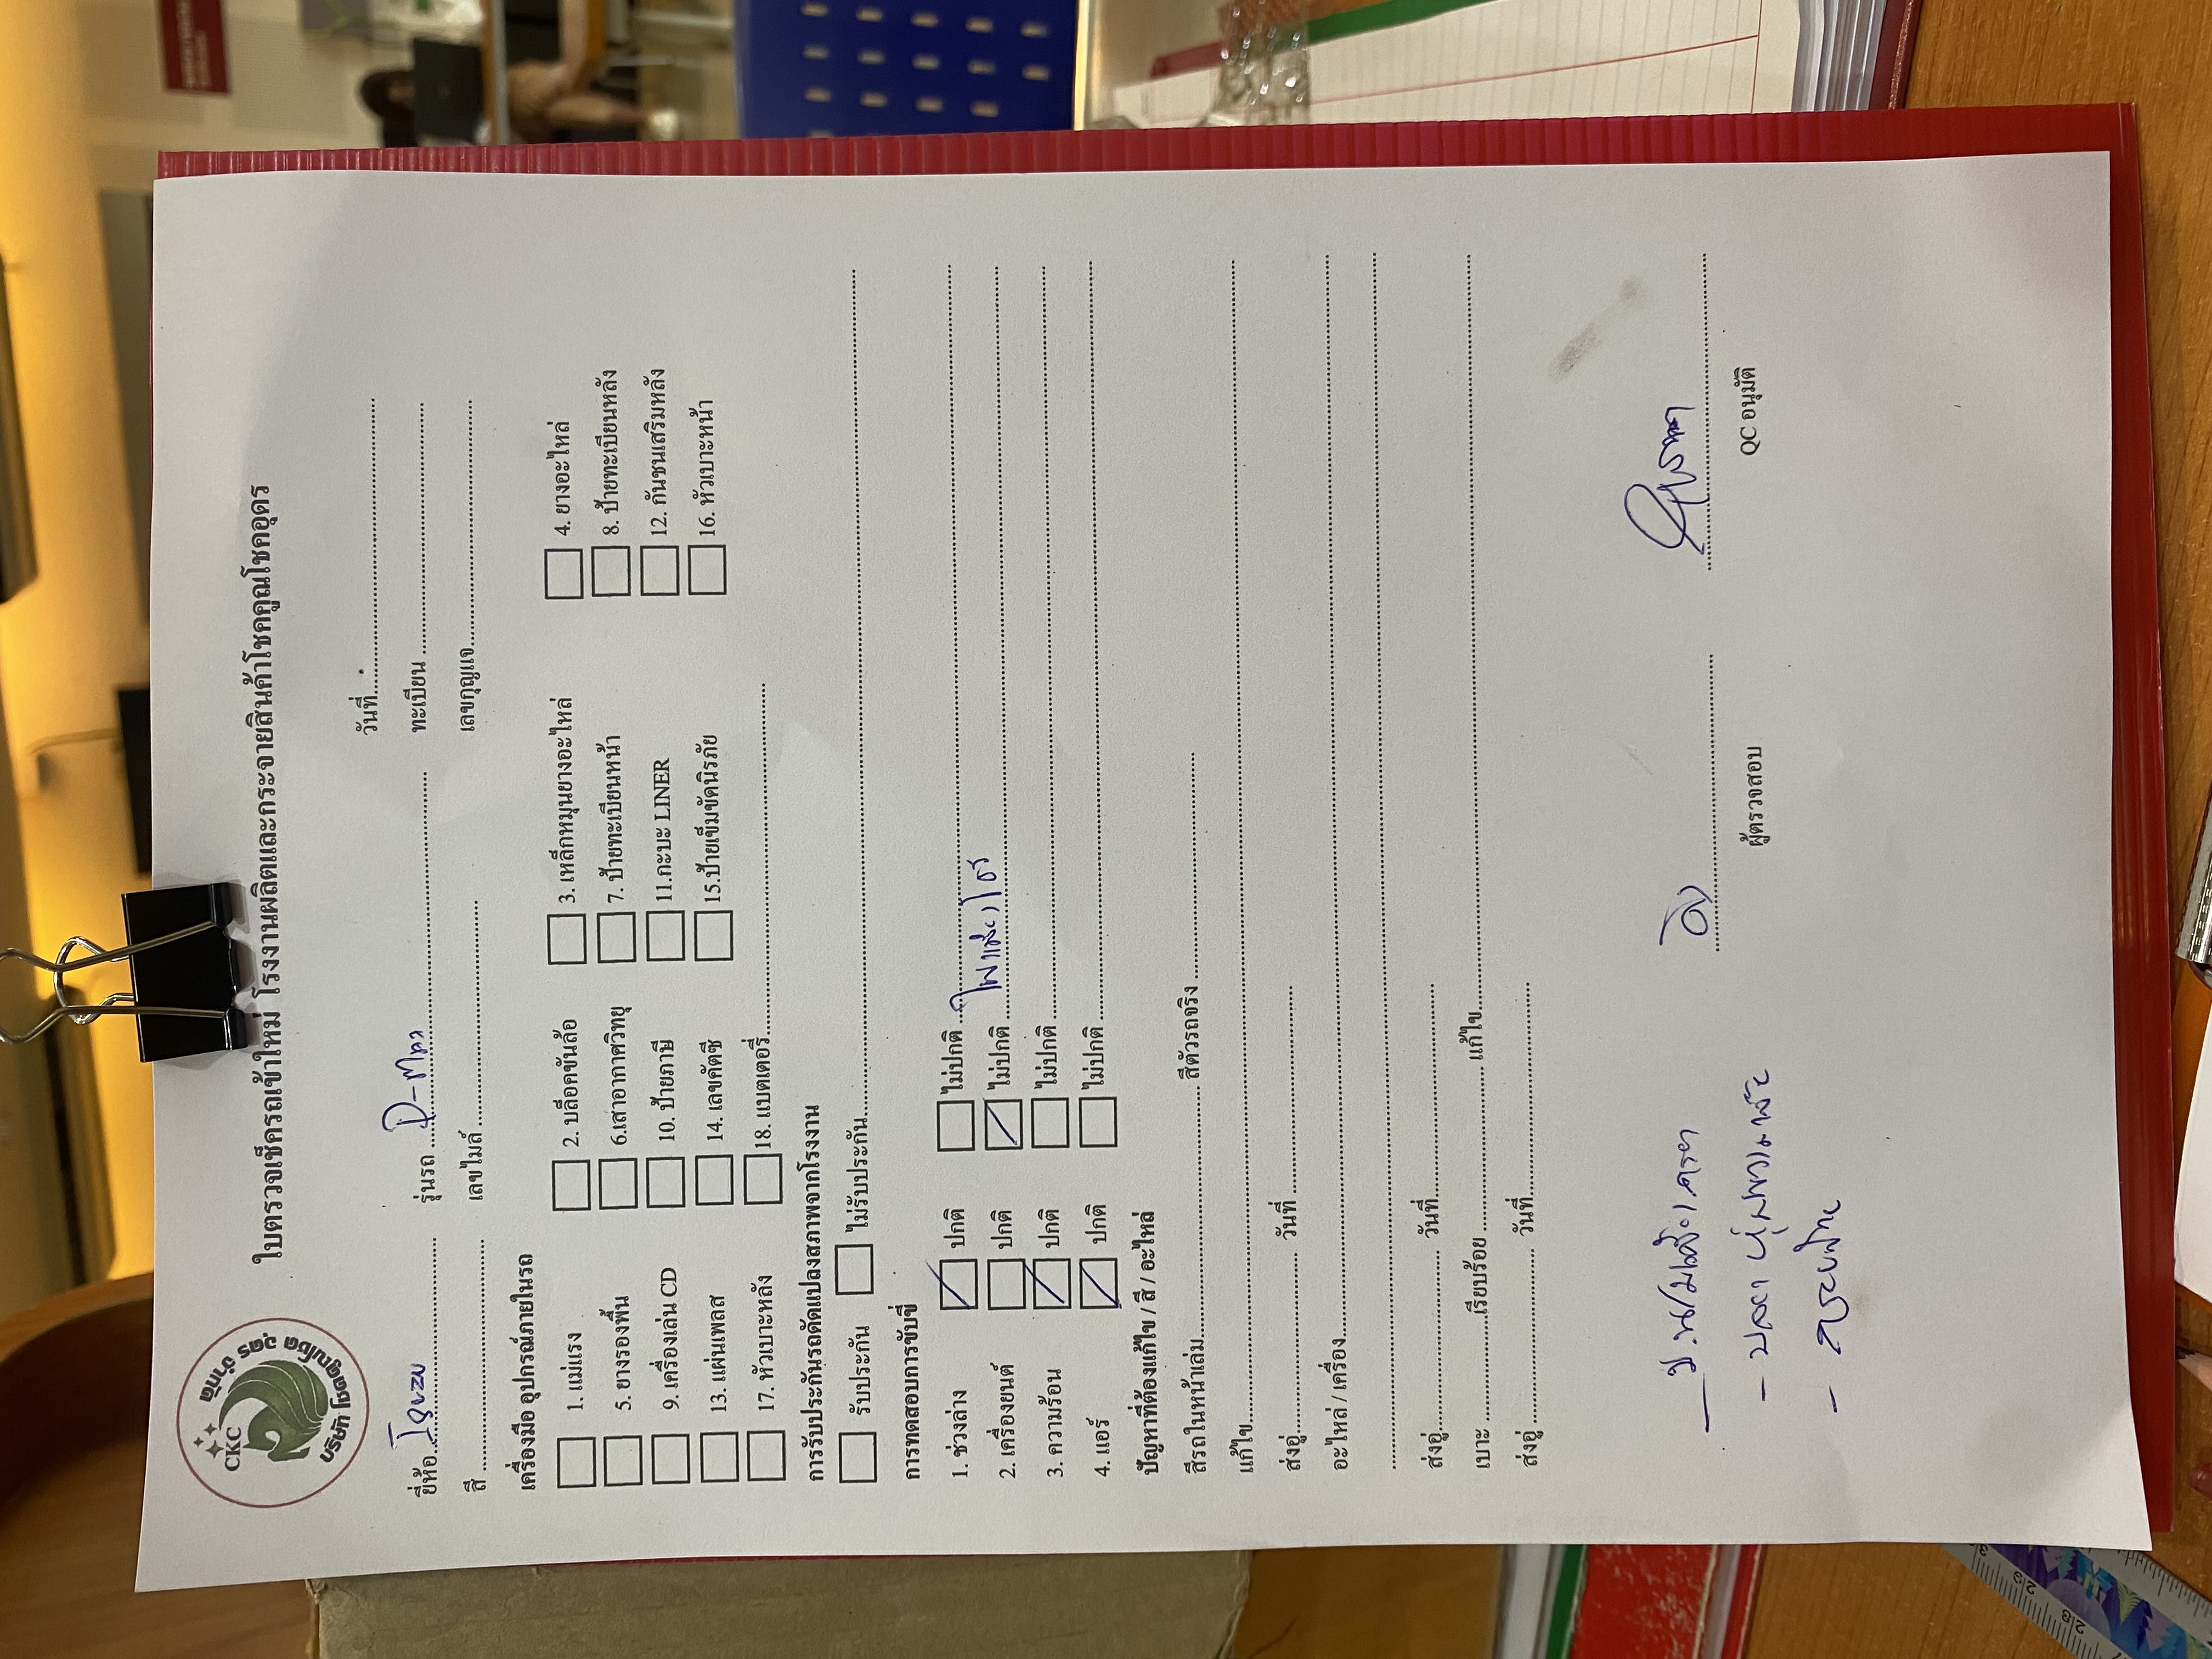 CKC
บริษัท โชคคูณโชค อุดร จำกัด
ใบตรวจเช็ครถเข้าใหม่ โรงงานผลิตและกระจายสินค้าโชคคูณโชคอุดร
วันที่
ยี่ห้อ รุ่นรถ D-max ทะเบียน
สี เลขไมล์ เลขกุญแจ
เครื่องมือ อุปกรณ์ภายในรถ
1. แม่แรง 2. บล็อคขันล้อ 3. เหล็กหมุนยางอะไหล่ 4. ยางอะไหล่
5. ยางรองพื้น 6.เสาอากาศวิทยุ 7. ป้ายทะเบียนหน้า 8. ป้ายทะเบียนหลัง
9. เครื่องเล่น CD 10. ป้ายภาษี 11.กะบะ LINER 12. กันชนเสริมหลัง
13. แผ่นเพลส 14. เลขคัตซี 15.ป้ายเข็มขัดนิรภัย 16. หัวเบาะหน้า
17. หัวเบาะหลัง 18. แบตเตอรี่
การรับประกันรถดัดแปลงสภาพจากโรงงาน
รับประกัน ไม่รับประกัน
การทดสอบการขับขี่
1. ช่วงล่าง ปกติ ไม่ปกติ
2. เครื่องยนต์ ปกติ ไม่ปกติ
3. ความร้อน ปกติ ไม่ปกติ
4. แอร์ ปกติ ไม่ปกติ
ปัญหาที่ต้องแก้ไข / สี / อะไหล่
สีรถในหน้าเล่ม สีตัวรถจริง
แก้ไข
ส่งอู่ วันที่
อะไหล่ / เครื่อง
ส่งอู่ วันที่
เบาะ เรียบร้อย แก้ไข
ส่งอู่ วันที่
ผู้ตรวจสอบ QC อนุมัติ